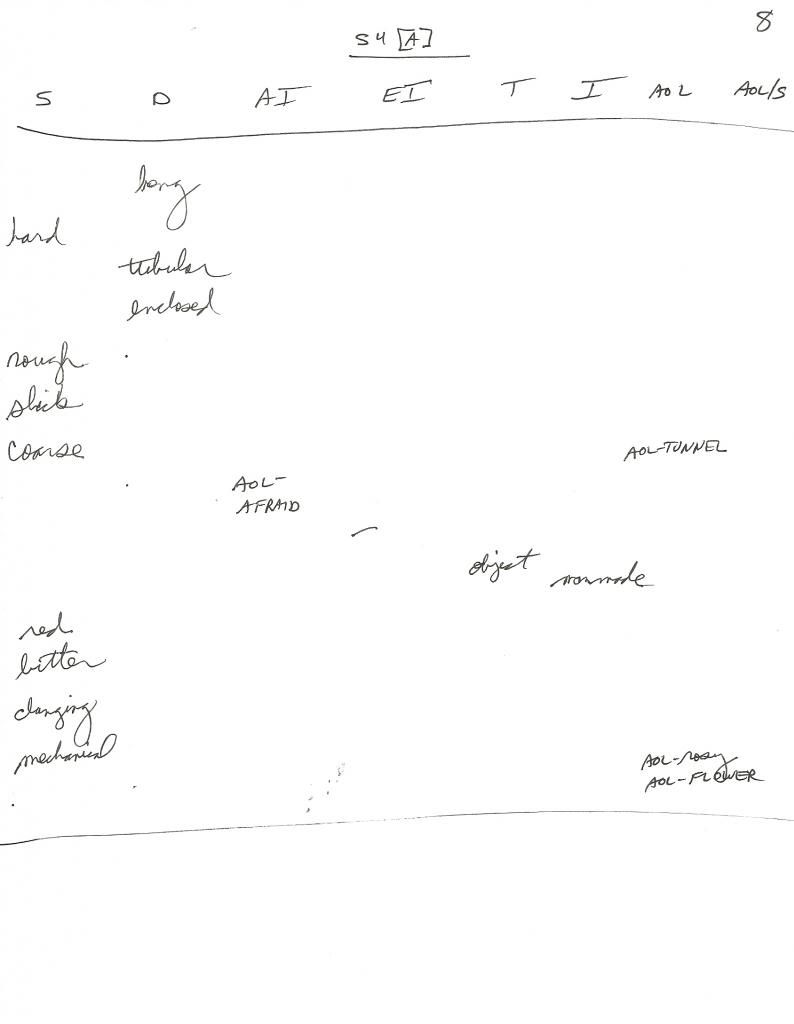 8
S4 [A]
S D AI EI T I AOL AOL/S
long
hard
tubular
enclosed
rough
slick
coarse AOL-TUNNEL
AOL-
AFRAID
object
manmade
red
bitter
clanging
mechanical
AOL-rosy
AOL-FLOWER